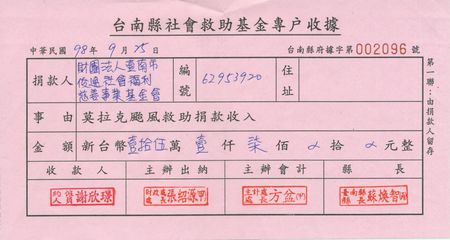 台南縣社會救助基金專户收據
中華民國 98年 9月 25日 台南縣府據字第002096號
捐款人 財團法人臺南市 悅進社會福利 慈善事業基金會 編號 62953920 住址
事由 莫拉克颱風救助捐款收入
金額 新台幣壹拾伍萬 壹仟 柒佰 〆拾 〆元整
收款人 主辦出納 主辦會計 縣長
約僱人員 謝欣璟 財政處處長 張紹源 主計處處長 方盆 臺南縣縣長 蘇煥智
第一聯:由捐款人留存